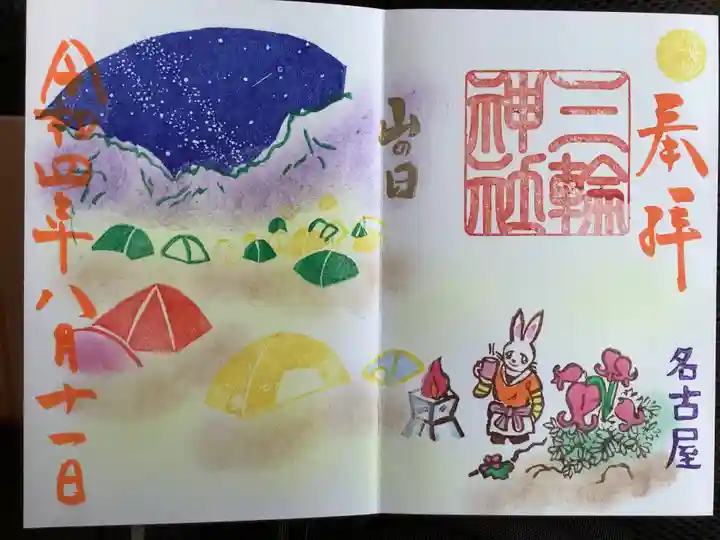 奉拝
三輪
神社
名古屋
山の日
令和四年八月十一日